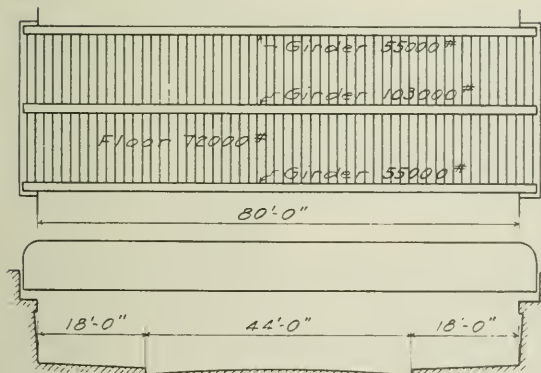 Girder 55000#
Girder 103000#
Floor 72000#
Girder 55000#
80'-0"
18'-0" 44'-0" 18'-0"